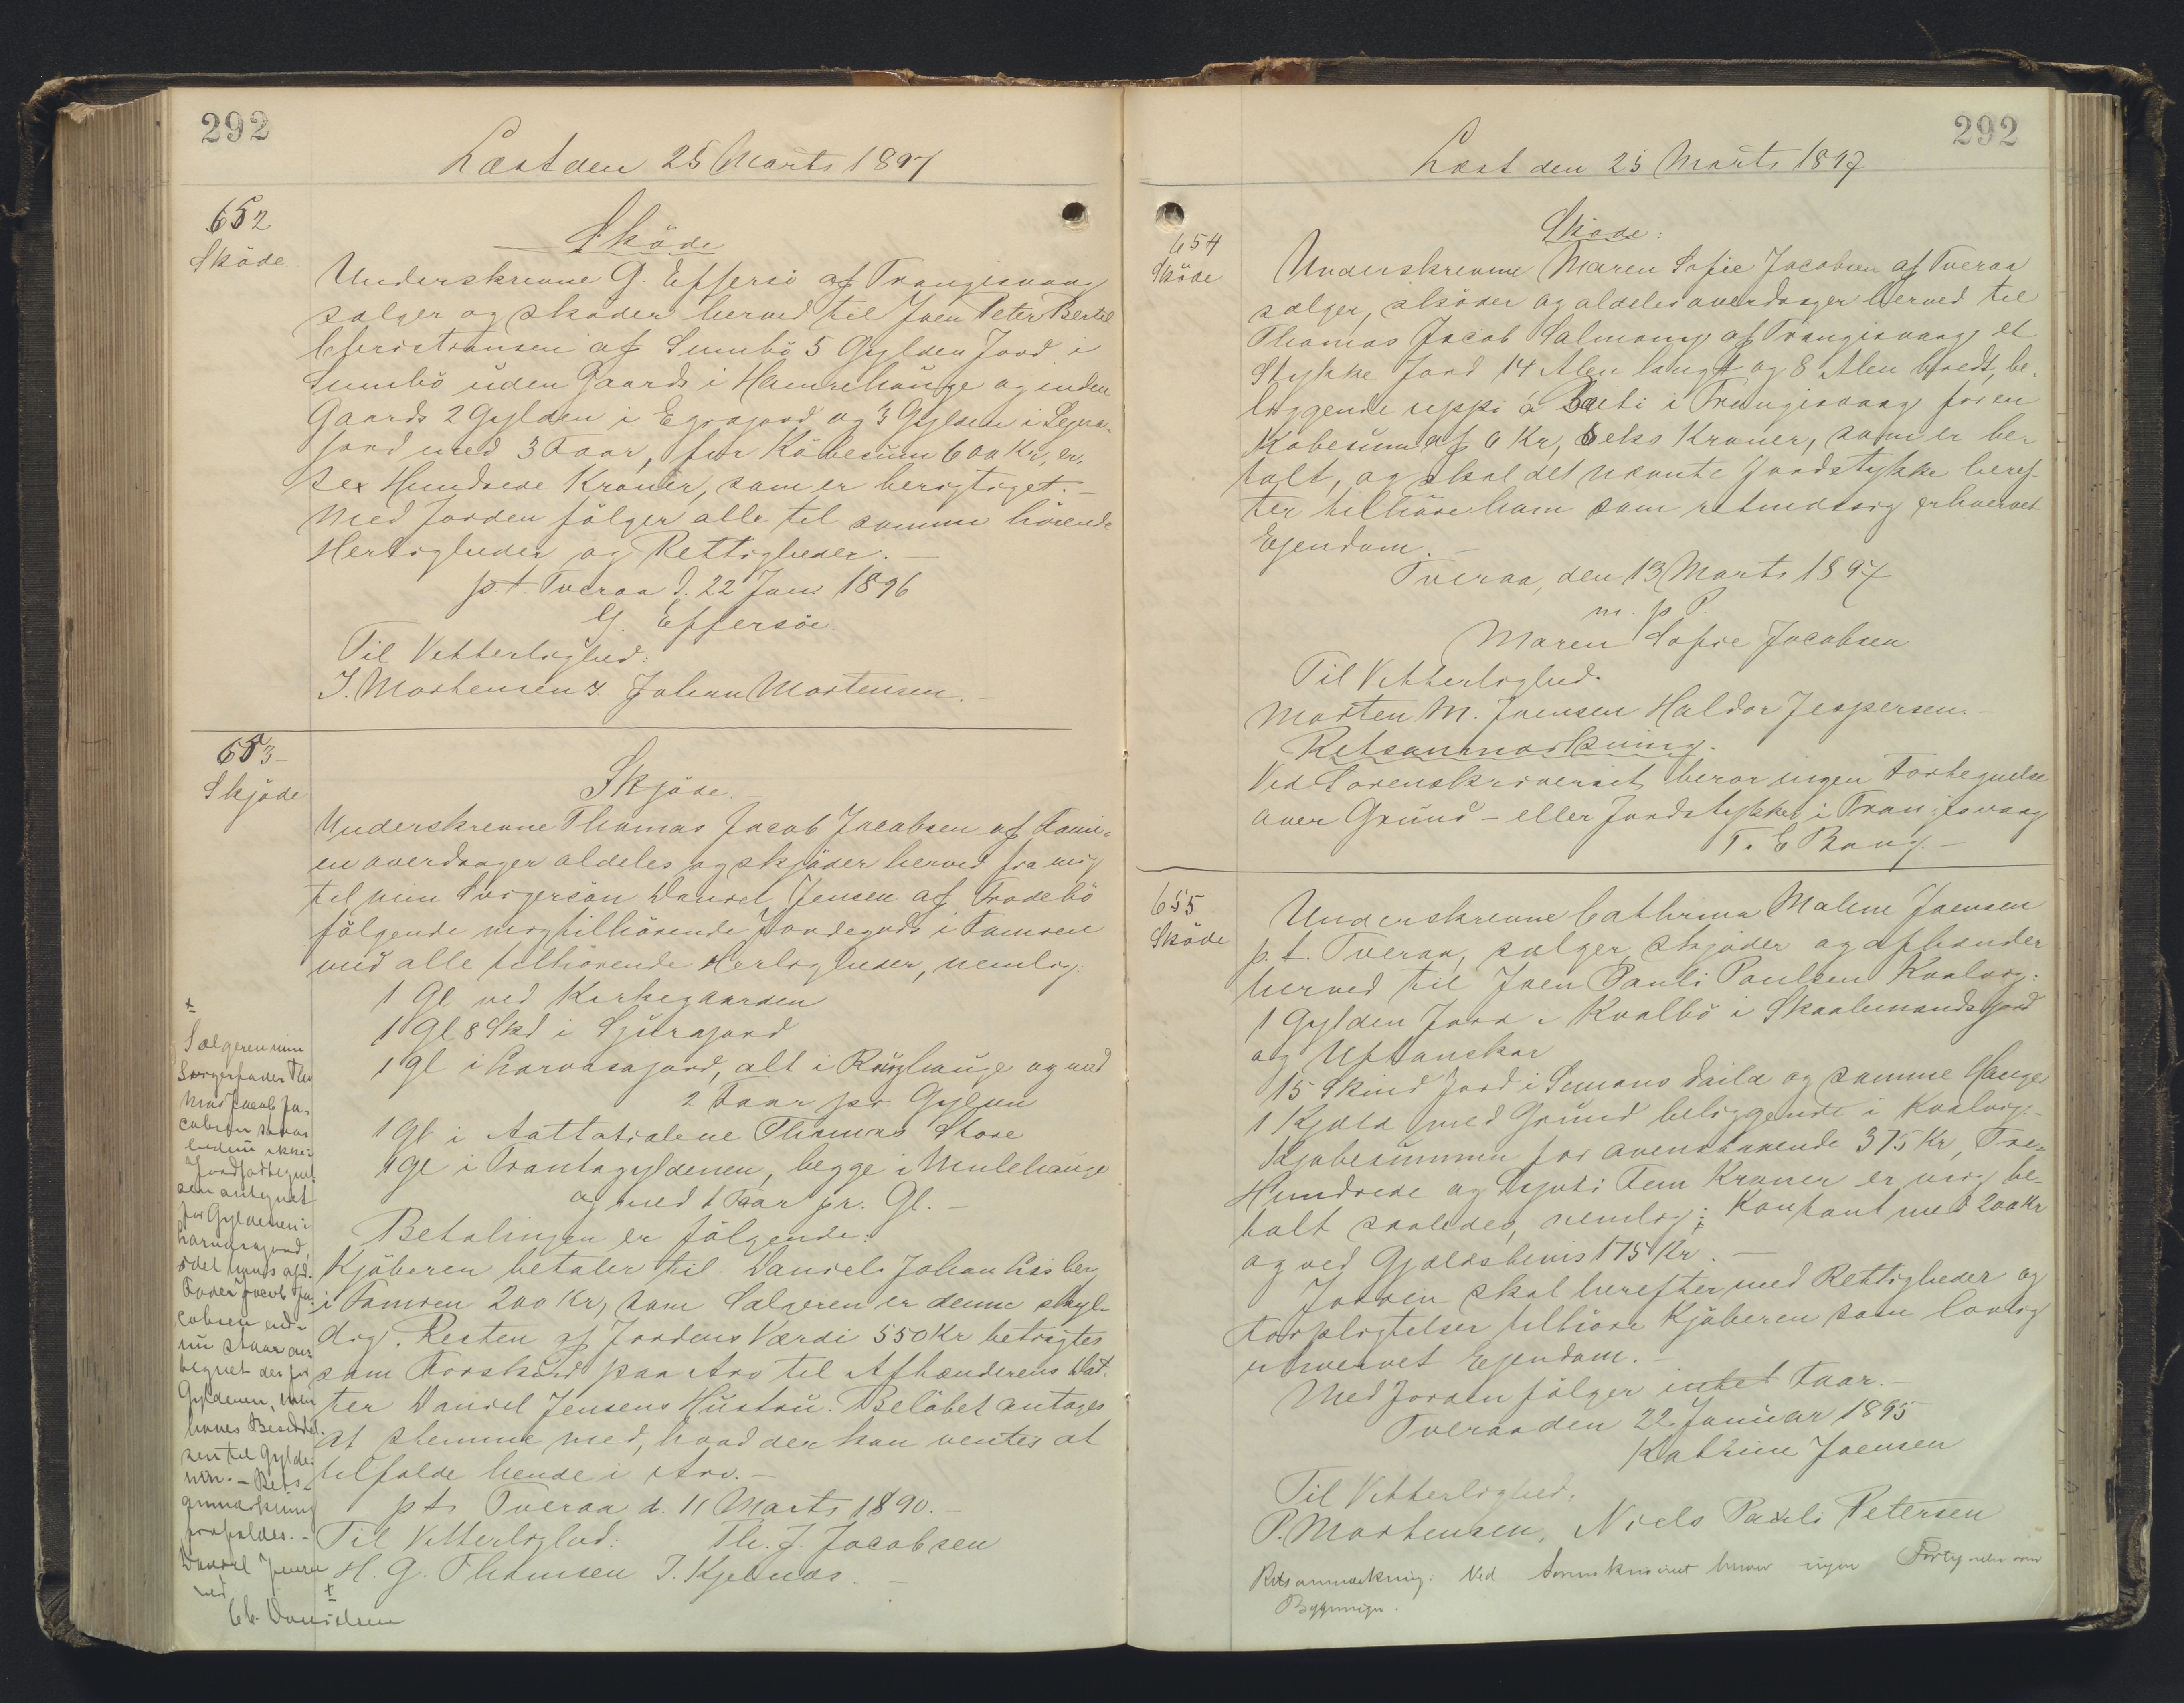 292
Læst den 25 Marts 1897
652
Sköde
Sköde
Underskrevne G. Effersö af Trangisvaag
sælger og sköder herved til Joen Peter Bertel
Christiansen af Sumbö 5 Gylden Jord i
Sumbö uden Gaards i Hamrehauge og inden
Gaards 2 Gylden i Egrajord og 3 Gylden i
jord med 3 Faar, for Köbesum 600 Kr, er,
Sex Hundrede Kroner, som er berigtiget. –
Med Jorden fölger alle til samme hörende
Herligheder og Rettigheder. –
p. t. Tveraa d. 22 Juni 1896
G. Effersöe
Til Vitterlighed:
J. Mortensen. Johan Mortensen. –
653
Skjöde
Skjöde. –
Underskrevne Thomas Jacob Jacobsen af Fami-
en overdrager aldeles og skjöder herved fra mig
til min Svigersön Daniel Jensen af Frodebö
fölgende mig tilhörende Jordegods i Famien
med alle tilhörende Herligheder, nemlig:
1 Gl ved Kirkegaarden
1 Gl 8 Skd i Sjurajord
1 Gl i Larvasajord, alt i Rúghauge og med
2 Faar pr. Gylden
1 Gl i Thomas Skore
1 Gl i Trantagyldenen, begge i Mulehauge
og med 1 Faar pr. Gl. –
Betalingen er fölgende:
Kjöberen betaler til Daniel Johan Lisberg
i Famien 200 Kr, som Sælgeren er denne skyl-
dig. Resten af Jordens Værdi 550 Kr betragtes
som Forskud paa Arv til Afhænderens Dat-
ter Daniel Jensens Hustru. Belöbet antages
at stemme med, hvad der kan ventes at
tilfalde hende i Arv. –
pt. Tveraa d. 11 Marts 1890. –
Til Vitterlighed: Th. J. Jacobsen
H. G. Thomsen J. Kjelnæs. –
+
Sælgeren min
Svigerfader Tho
mas Jacob Ja-
cobsen
endnu ikke i
Jordfortegnel
sen antegnet
for Gyldenen i
Larvasajord,
idet hans afd.
Fader Jacob Ja
cobsen end-
nu staar an-
tegnet der for
Gyldenen, men
haves Besiddel
sen til Gylde
nen. – Rets-
anmærkning
frafaldes. –
Daniel Jensen
ved
Ch. Danielsen
292
Læst den 25 Marts 1897
654
Sköde
Sköde:
Underskrevne Maren Sofie Jacobsen af Tveraa
sælger, sköder og aldeles overdrager herved til
Thomas Jacob Salmong af Trangisvaag et
Stykke Jord 14 Alen langt og 8 Alen bredt, be-
liggende uppi á Bieti i Trangisvaag for en
Köbesum af 6 Kr, Seks Kroner, som er be
talt, og skal det nævnte Jordstykke heref-
ter tilhöre ham som retmæssig erhvervet
Ejendom. –
Tveraa, den 13 Marts 1897
m. p. P.
Maren Sofie Jacobsen
Til Vitterlighed.
Morten M. Joensen Haldor Jespersen. –
Retsanmærkning.
Ved Sorenskriveriet beror ingen Fortegnelse
over Grund- eller Jordstykker i Trangisvaag
T. E Bang. –
655
Sköde
Underskrevne Cathrina Malene Joensen
p. t. Tveraa, sælger, skjöder og afhænder
herved til Joen Pauli Poulsen Kvalvig:
1 Gylden Jord i Kvalbö i Skaalemandsjord
og
15 Skind Jord i Simons Daila og samme Hauge
1 Kjæld med Grund beliggende i Kvalvig. –
Kjöbesummen for ovenstaaende 375 Kr, Tre
Hundrede og Sytti Fem Kroner er mig be-
talt saaledes, nemlig: Kontant med 200 Kr
og ved Gjældsbevis 175 Kr. –
Jorden skal herefter med Rettigheder og
Forpligtelser tilhöre Kjöberen som lovlig
erhvervet Ejendom. –
Med Jorden fölger intet Faar. –
Tveraa den 22 Januar 1895
Katrine Joensen
Til Vitterlighed.
P. Mortensen, Niels Pauli Petersen
Retsanmærkning: Ved Sorenskriveriet beror ingen Fortegnelse over
Bygninger.